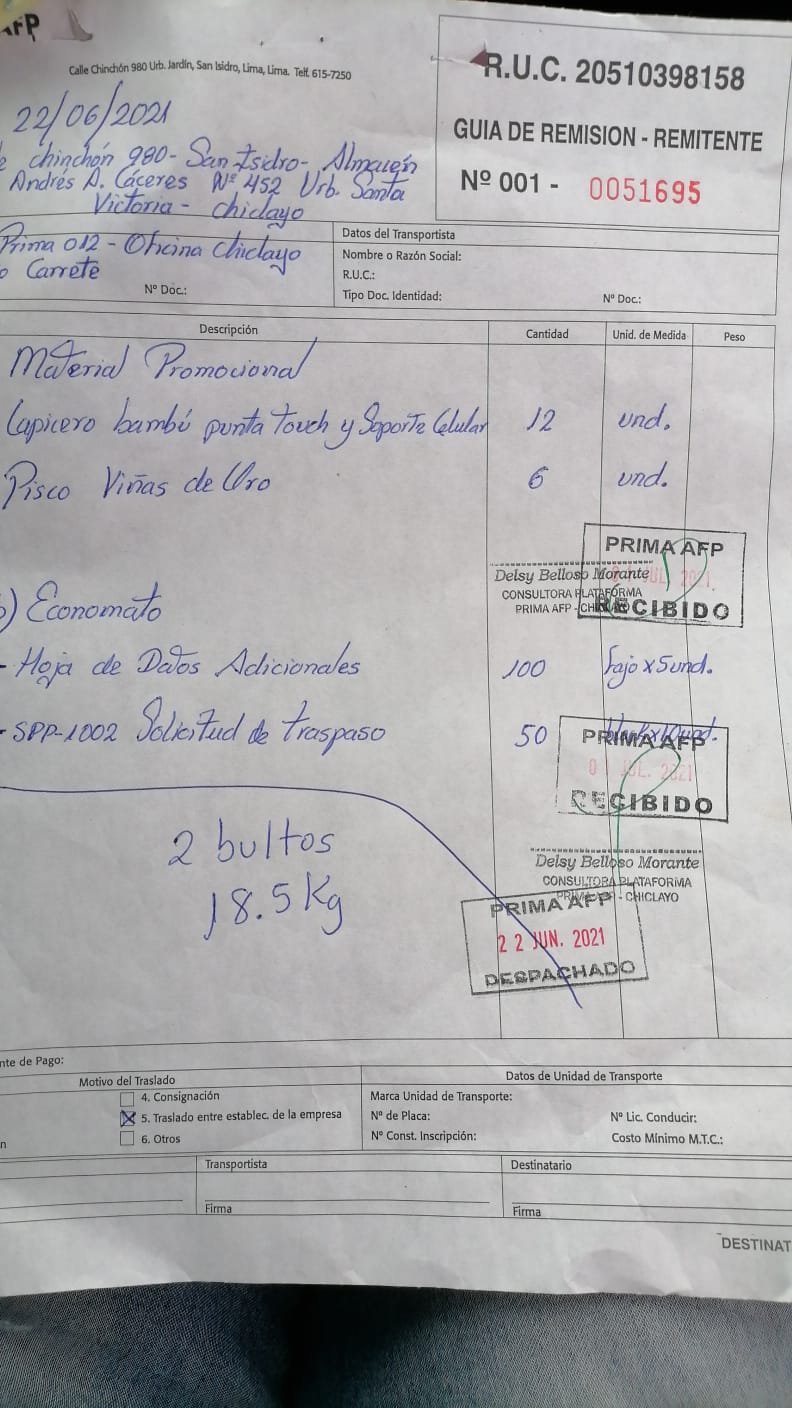 AFP
Calle Chinchón 980 Urb. Jardín, San Isidro, Lima, Lima. Telf. 615-7250
R.U.C. 20510398158
GUIA DE REMISION - REMITENTE
Nº 001 - 0051695
22/06/2021
chinchón 980 - San Isidro - Almacén
Andrés A. Cáceres Nº 452 Urb. Santa
Victoria - chiclayo
Prima 012 - Oficina Chiclayo
Carrete
Nº Doc.:
Datos del Transportista
Nombre o Razón Social:
R.U.C.:
Tipo Doc. Identidad: Nº Doc.:
Descripción Cantidad Unid. de Medida Peso
Material Promocional
Lapicero bambú punta touch y Soporte Celular 12 und.
Pisco Viñas de Oro 6 und.
PRIMA AFP
JUL 2021
RECIBIDO
Delsy Belloso Morante
CONSULTORA PLATAFORMA
PRIMA AFP - CHICLAYO
) Economato
- Hoja de Datos Adicionales 100 fajo x 5und.
- SPP-1002 Solicitud de traspaso 50
PRIMA AFP
0 JUL. 2021
RECIBIDO
2 bultos
18.5 Kg
Delsy Belloso Morante
CONSULTORA PLATAFORMA
PRIMA AFP - CHICLAYO
PRIMA AFP
22 JUN. 2021
DESPACHADO
nte de Pago:
Motivo del Traslado
4. Consignación
5. Traslado entre establec. de la empresa
6. Otros
n
Datos de Unidad de Transporte
Marca Unidad de Transporte:
Nº de Placa: Nº Lic. Conducir:
Nº Const. Inscripción: Costo Mínimo M.T.C.:
Transportista Destinatario
Firma Firma
DESTINAT